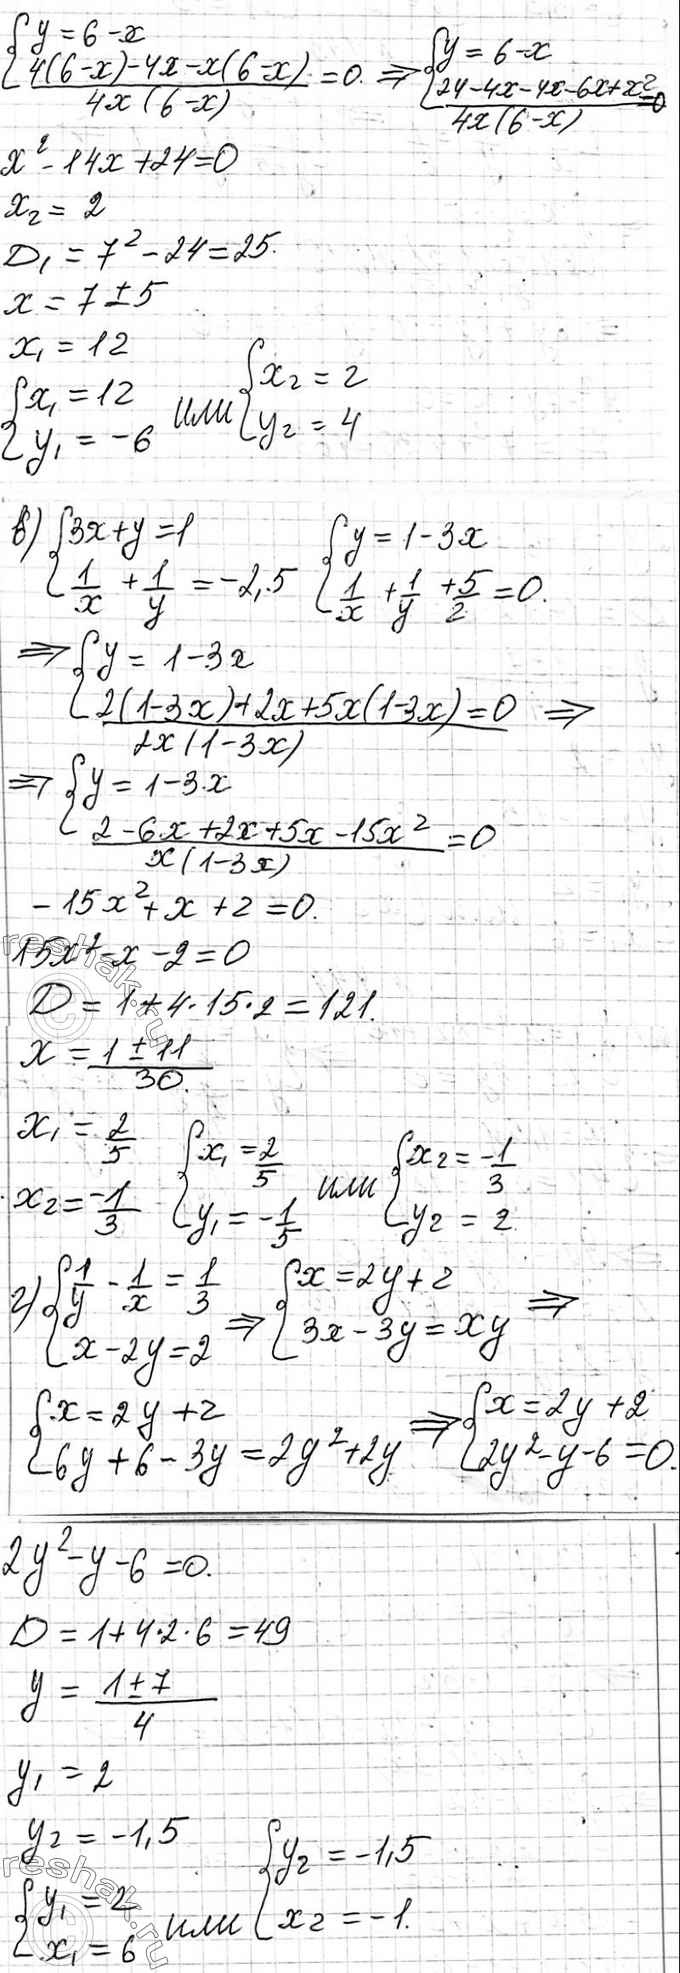 { y = 6 - x
{ (4(6-x) - 4x - x(6-x))/(4x(6-x)) = 0. ⇒ { y = 6 - x
{ (24-4x-4x-6x+x²)/(4x(6-x)) = 0
x² - 14x + 24 = 0
x₂ = 2
D₁ = 7² - 24 = 25.
x = 7 ± 5
x₁ = 12
{ x₁ = 12
{ y₁ = -6 или { x₂ = 2
{ y₂ = 4
в) { 3x + y = 1
{ 1/x + 1/y = -2,5 { y = 1 - 3x
{ 1/x + 1/y + 5/2 = 0.
⇒ { y = 1 - 3x
{ (2(1-3x) + 2x + 5x(1-3x) = 0)/(2x(1-3x)) ⇒
⇒ { y = 1 - 3x
{ (2 - 6x + 2x + 5x - 15x²)/(x(1-3x)) = 0
-15x² + x + 2 = 0.
15x² - x - 2 = 0
D = 1 + 4·15·2 = 121.
x = (1 ± 11)/30.
x₁ = 2/5
x₂ = -1/3
{ x₁ = 2/5
{ y₁ = -1/5 или { x₂ = -1/3
{ y₂ = 2
г) { 1/y - 1/x = 1/3
{ x - 2y = 2 ⇒ { x = 2y + 2
{ 3x - 3y = xy ⇒
{ x = 2y + 2
{ 6y + 6 - 3y = 2y² + 2y ⇒ { x = 2y + 2
{ 2y² - y - 6 = 0.
2y² - y - 6 = 0.
D = 1 + 4·2·6 = 49
y = (1 ± 7)/4
y₁ = 2
y₂ = -1,5
{ y₁ = 2
{ x₁ = 6 или { y₂ = -1,5
{ x₂ = -1.
reshak.ru
reshak.ru